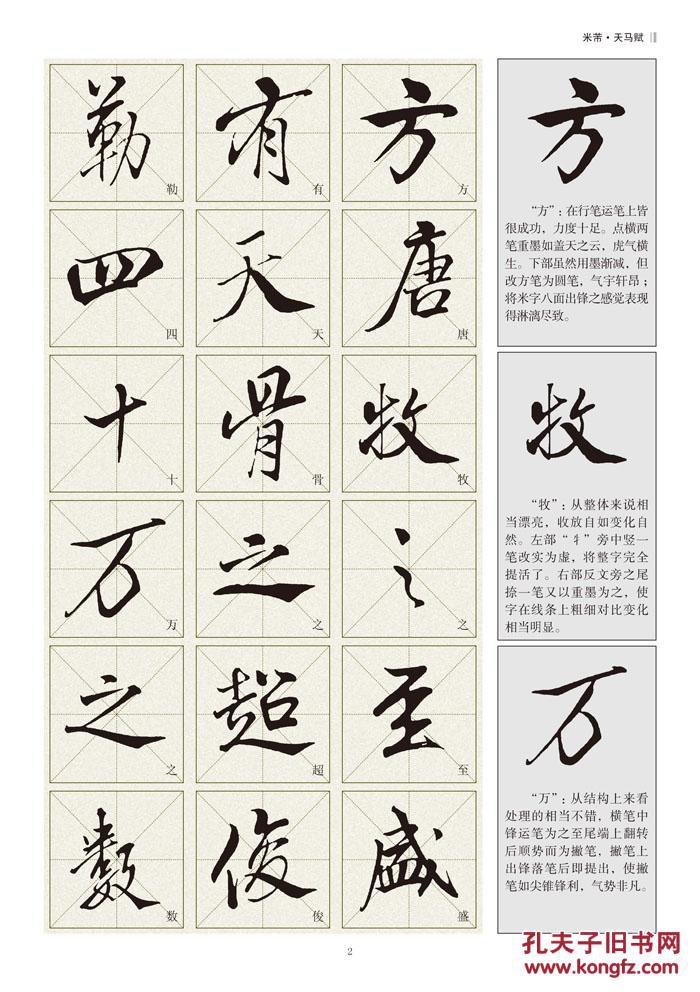 米芾·天马赋
方
唐
牧
之
至
盛
有
天
骨
之
超
俊
勒
四
十
万
之
数
方
唐
牧
之
至
盛
有
天
骨
之
超
俊
勒
四
十
万
之
数
方
“方”：在行笔运笔上皆
很成功，力度十足。点横两
笔重墨如盖天之云，虎气横
生。下部虽然用墨渐减，但
改方笔为圆笔，气宇轩昂；
将米字八面出锋之感觉表现
得淋漓尽致。
牧
“牧”：从整体来说相
当漂亮，收放自如变化自
然。左部“牜”旁中竖一
笔改实为虚，将整字完全
提活了。右部反文旁之尾
捺一笔又以重墨为之，使
字在线条上粗细对比变化
相当明显。
万
“万”：从结构上来看
处理的相当不错，横笔中
锋运笔为之至尾端上翻转
后顺势而为撇笔，撇笔上
出锋落笔后即提出，使撇
笔如尖锥锋利，气势非凡。
2
孔夫子旧书网
www.kongfz.com